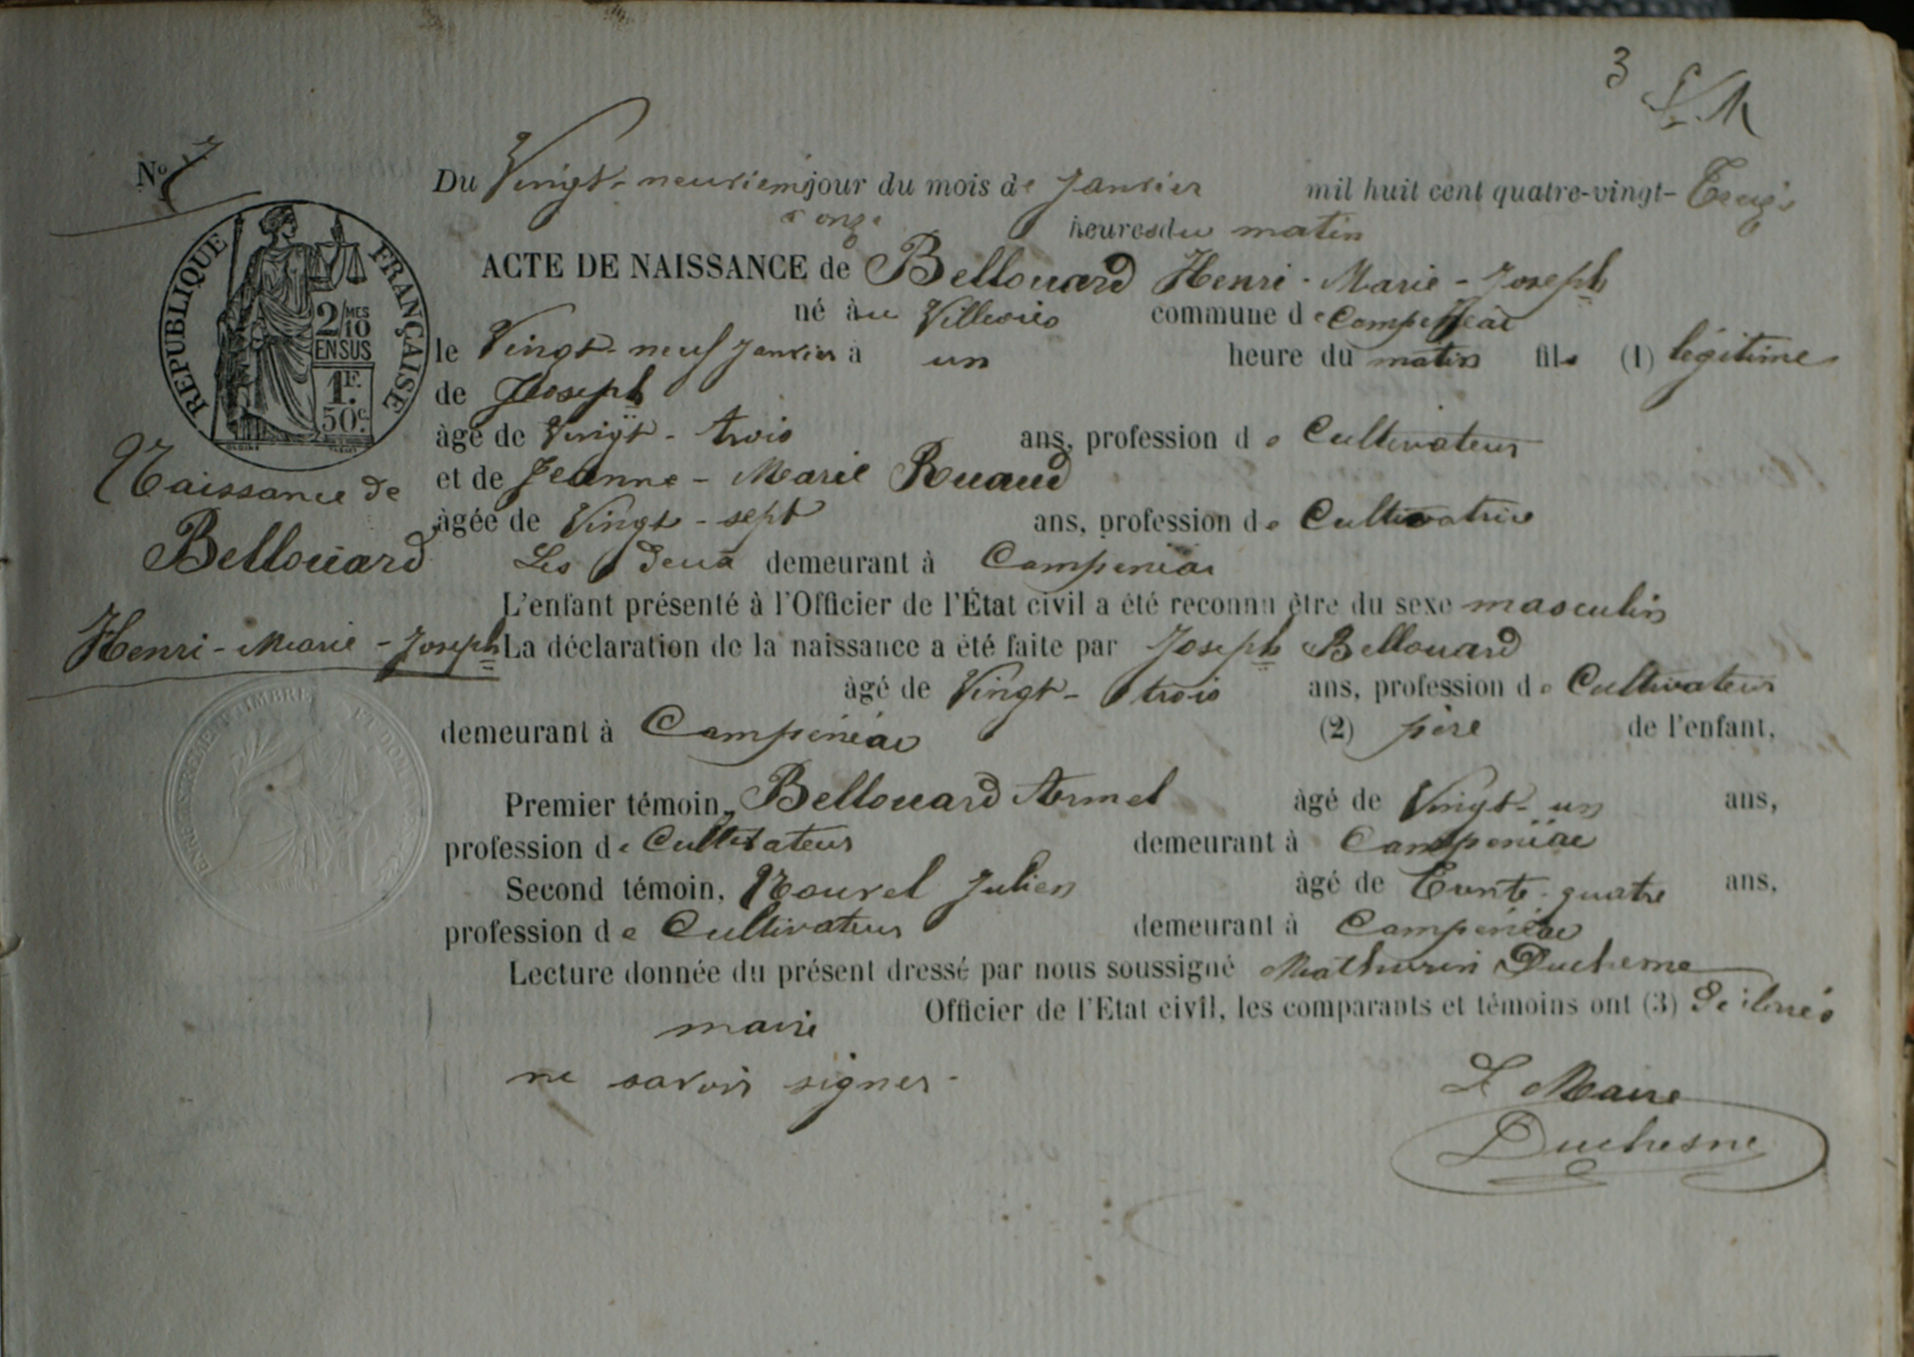 3
S.M
N° 7
Du Vingt-neuvième jour du mois de Janvier mil huit cent quatre-vingt-Treize
à onze heures du matin
ACTE DE NAISSANCE de Bellouard Henri-Marie-Joseph
né au commune de Campénéac
le Vingt-neuf Janvier à un heure du matin fils (1) légitime
de Joseph
âgé de Vingt-trois ans, profession de Cultivateur
et de Jeanne-Marie Ruaud
âgée de Vingt-sept ans, profession de Cultivatrice
Les deux demeurant à Campénéac
L'enfant présenté à l'Officier de l'État civil a été reconnu être du sexe masculin
La déclaration de la naissance a été faite par Joseph Bellouard
âgé de Vingt-trois ans, profession de Cultivateur
demeurant à Campénéac (2) père de l'enfant.
Premier témoin, Bellouard Armel âgé de Vingt-un ans,
profession de Cultivateur demeurant à Campénéac
Second témoin, Nouvel Julien âgé de Trente-quatre ans,
profession de Cultivateur demeurant à Campénéac
Lecture donnée du présent dressé par nous soussigné Mathurin Duchesne
maire Officier de l'Etat civil, les comparants et témoins ont (3) déclaré
ne savoir signer.
Le Maire
Duchesne
RÉPUBLIQUE FRANÇAISE
2/10 MES
EN SUS
1F.
50c.
Naissance de
Bellouard
Henri-Marie-Joseph